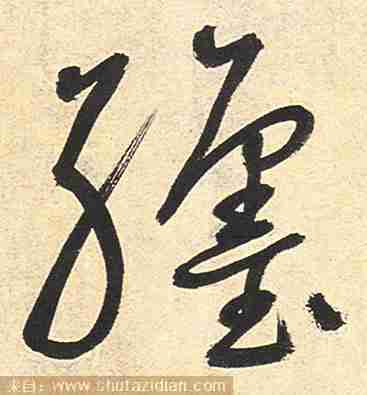 纏
来自：www.shufazidian.com